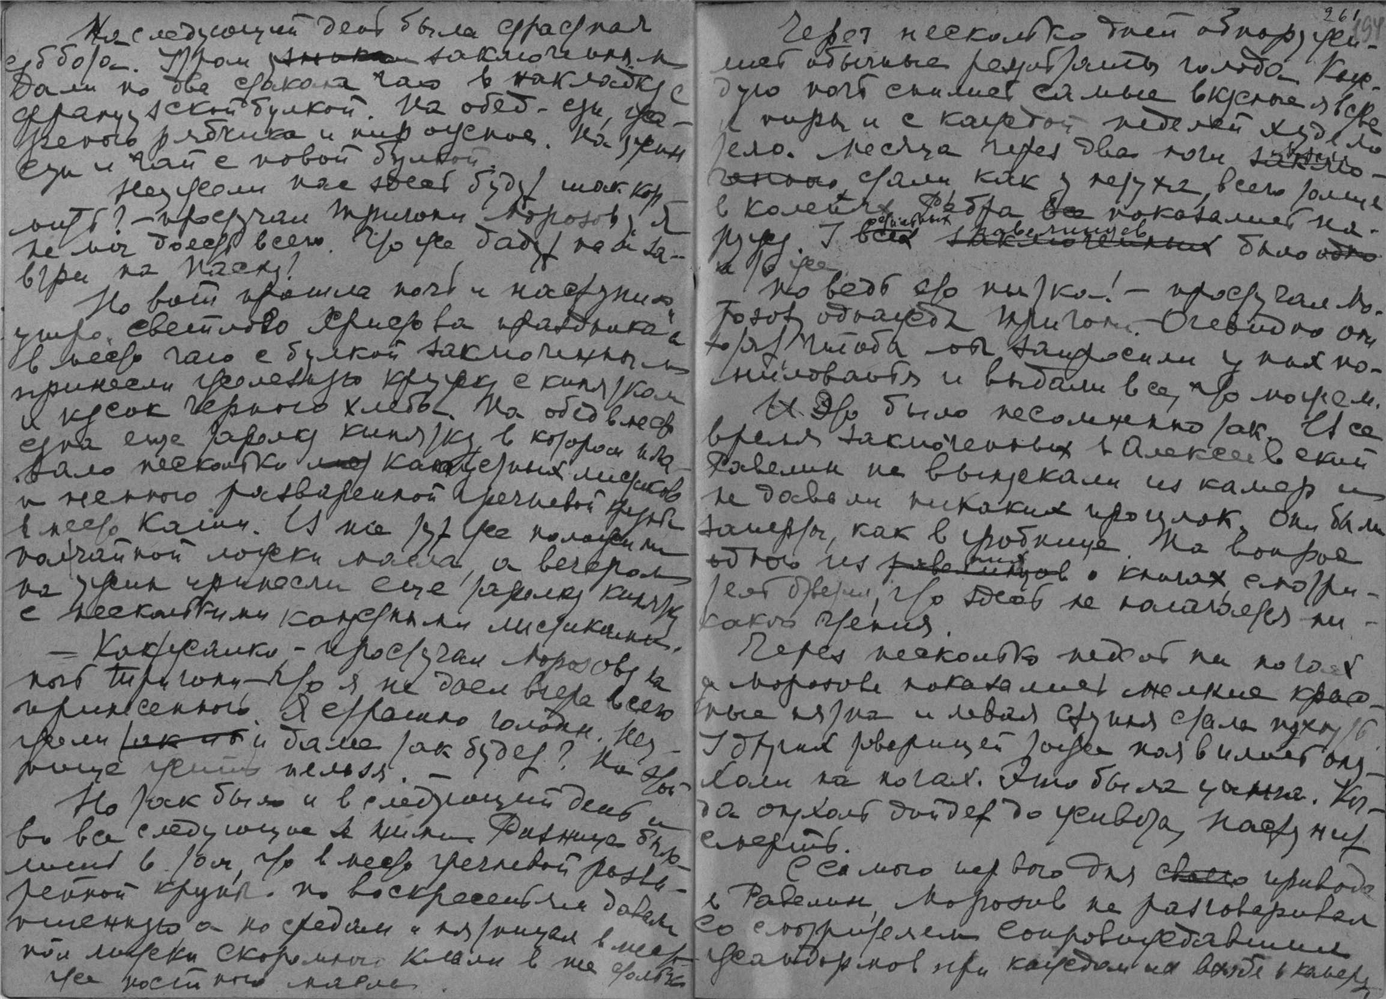 На следующий день была страстная
суббота. Утром заключенным
дали по два стакана чаю в накладку с
французской булкой. На обед - суп, жа-
реного рябчика и пирожное. На ужин
суп и чай с новой булкой.
Неужели нас здесь будут так кор-
мить? - простучал Тригони Морозову. Я
не мог доесть всего. Что же дадут нам за-
втра на Пасху?
Но вот прошла ночь и наступило
утро "светлого Христова праздника" и
вместо чаю с булкой заключенным
принесли железную кружку с кипятком
и кусок черного хлеба. На обед вместо
супа еще тарелку кипятку, в котором пла-
вало несколько капустных листиков
и немного разваренной гречневой крупы
вместо каши. И на тут же положили
пол чайной ложки масла, а вечером
на ужин принесли еще тарелку кипятку
с несколькими капустными листиками.
- Как жалко, - простучал Морозову на
ночь Тригони, - что я не доел вчера всего
принесенного. Я страшно голоден. Неу-
жели и далее так будет? На этой
пище жить нельзя. -
Но так было и в следующий день и
во все следующие за ними. Разница бы-
ла лишь в том, что вместо гречневой разва-
ренной крупы по воскресеньям давали
пшенную а по средам и пятницам вместо
пол ложки скоромного клали в нее столько
же постного масла.
261
194
Через несколько дней обнаружи-
лись обычные результаты голода. Каж-
дую ночь снились самые вкусные яства
и пиры и с каждой неделей худело
тело. Месяца через два ноги
стали как у петуха, всего толще
в коленях. Ребра показались на-
ружу. У всех остальных равелинцев было
то же.
Но ведь это пытка! - простучал Мо-
розову однажды Тригони. - Очевидно они
хотят чтобы мы запросили у них по-
милования и выдали все, что можем.
И это было несомненно так. Все
время заключенных в Алексеевский
равелин не выпускали из камер и
не давали никаких прогулок. Они были
заперты, как в гробнице. На вопрос
одного из них о книгах, смотри-
тель ответил, что здесь не полагается ни-
какого чтения.
Через несколько недель на ногах
у Морозова показались мелкие крас-
ные пятна и левая ступня стала пухнуть.
У других товарищей тоже появились опу-
холи на ногах. Это была цынга. Ког-
да опухоль дойдет до живота, наступит
смерть.
С самого первого дня привода
в Равелин, Морозов не разговаривал
со смотрителем сопровождавшим
жандармов при каждом их входе в камеру,